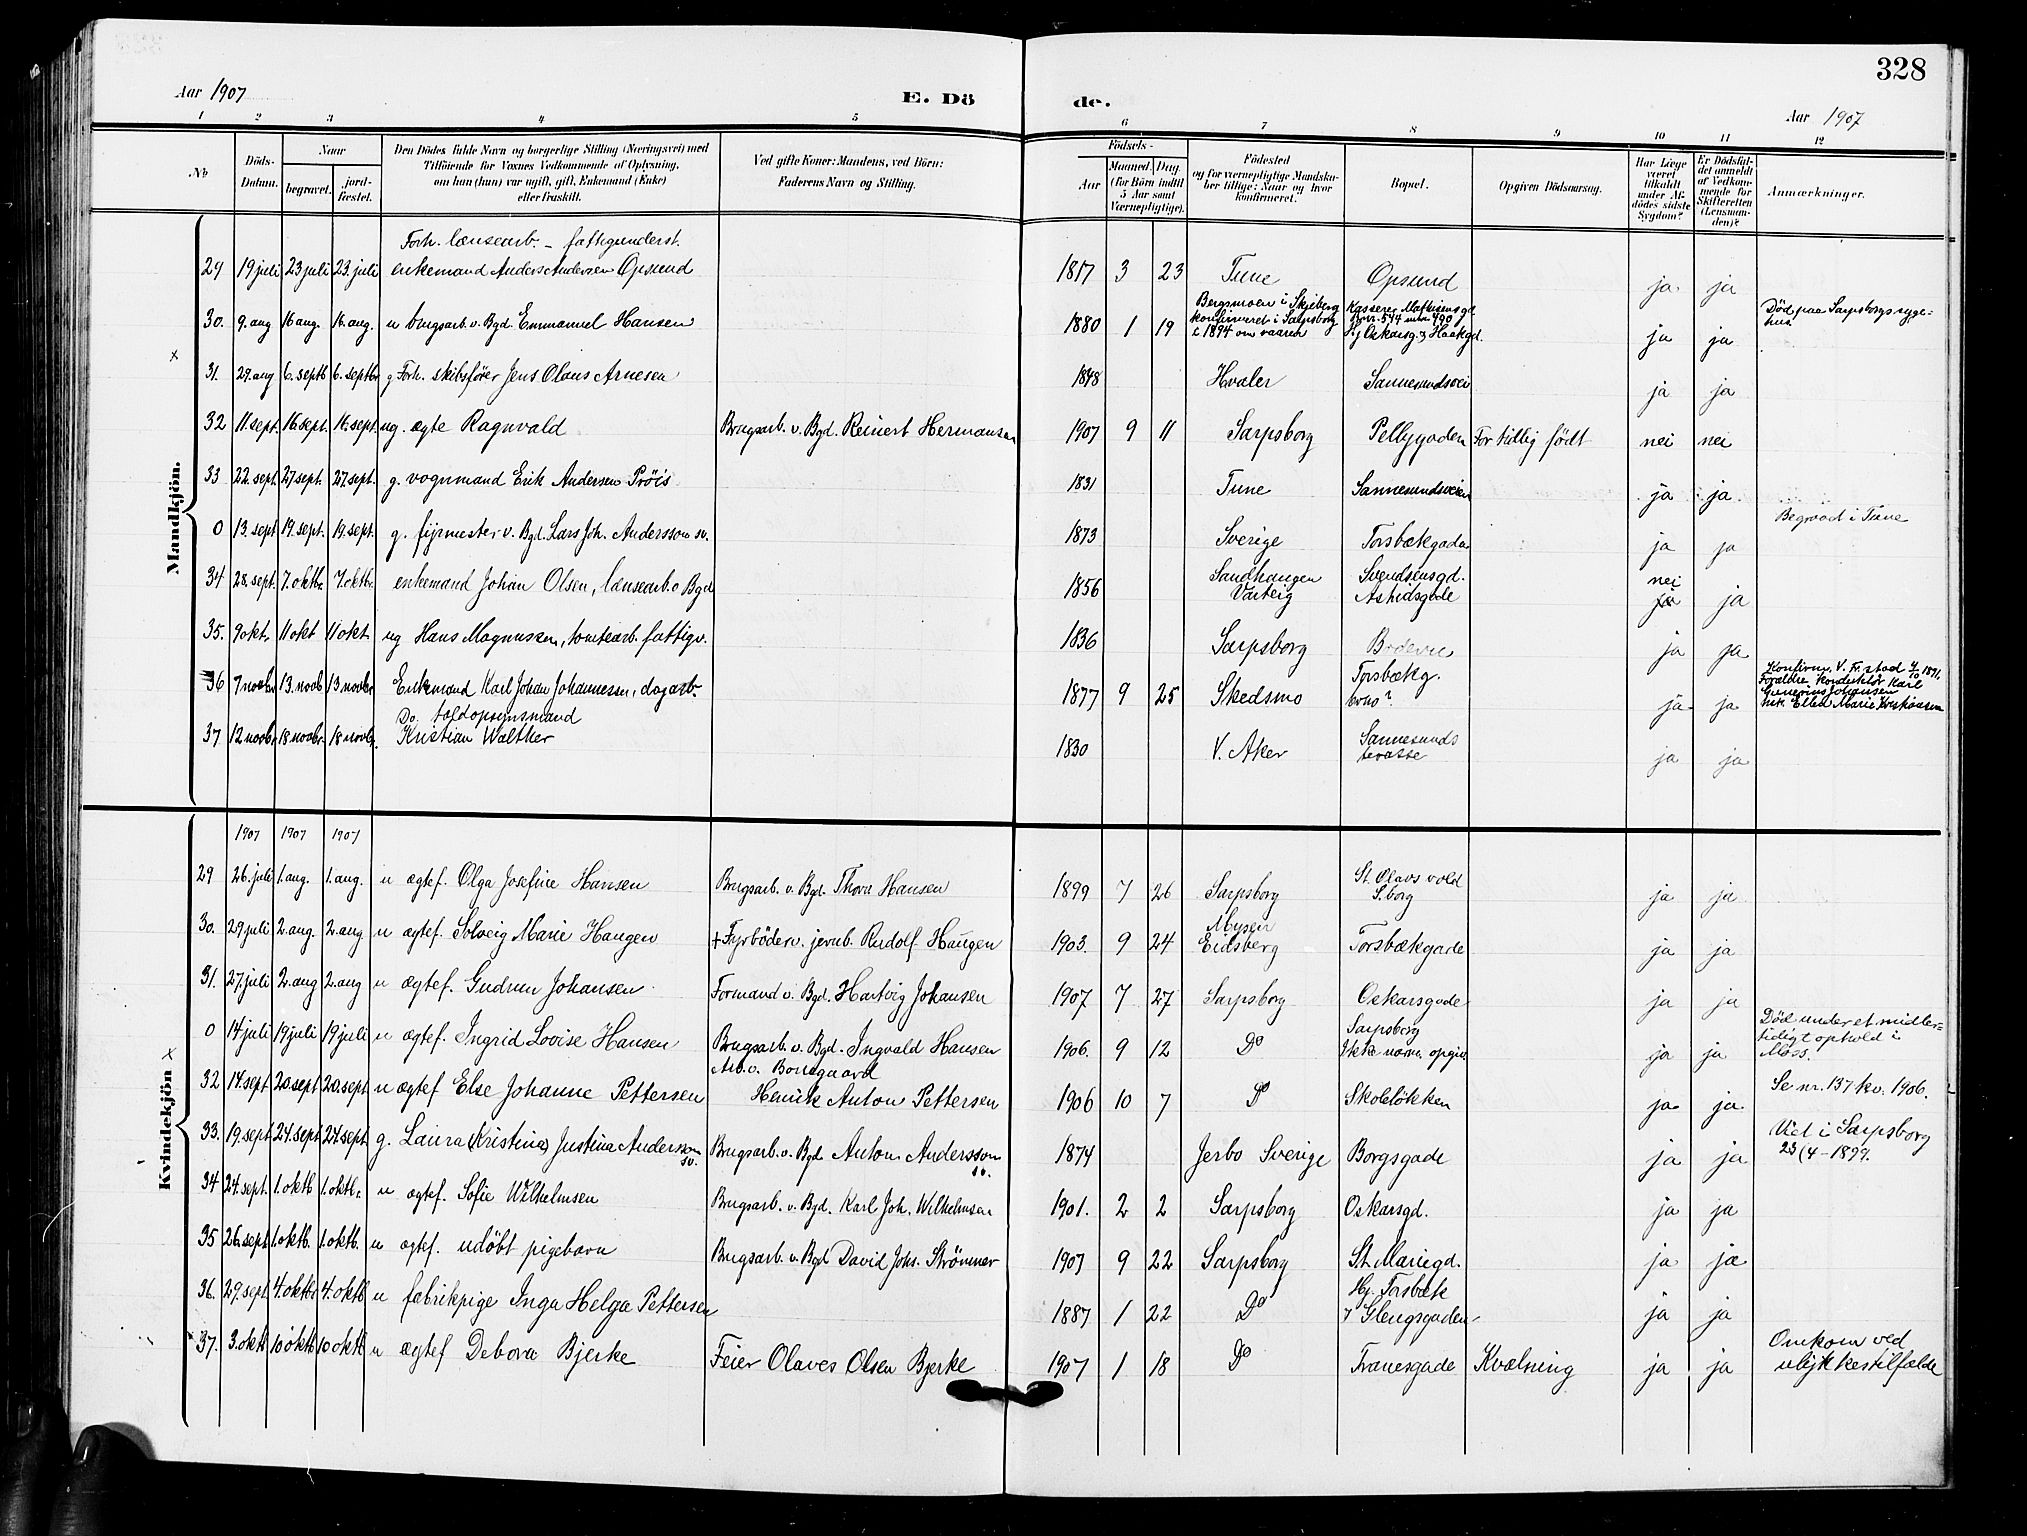 328
Aar 1907
E. Dö
de.
Aar 1907
1 2 3 4 5 6 7 8 9 10 11 12
No
Döds-Datum.
Naar
begravet.
jord-fæstet.
Den Dödes fulde Navn og borgerlige Stilling (Næringsvei) med
Tilföiende for Voxnes Vedkommende af Oplysning,
om han (hun) var ugift, gift, Enkemand (Enke)
eller fraskilt.
Ved gifte Koner: Mandens, ved Börn:
Faderens Navn og Stilling.
Födsels-
Aar
Maaned. Dag.
(for Börn indtil
5 Aar samt
Værnepligtige).
Födested
og for værnepligtige Mandska-
ber tillige: Naar og hvor
konfirmeret.
Bopæl.
Opgiven Dödsaarsag.
Har Læge
været
tilkaldt
under Af-
dödes sidste
Sygdom?
Er Dödsfal-
det anmeldt
af Vedkom-
mende for
Skifteretten
(Lensman-
den)?
Anmærkninger.
Mandkjön.
Forh. lænsearb. – fattigunderst.
29 19 juli 23 juli 23. juli enkemand Anders Andersen Opsund 1817 3 23 Tune Opsund ja ja
30. 9. aug 16 aug. 16. aug. u brugsarb. v. Bgd. Emmanuel Hansen 1880 1 19 Bergsmoen i Skjeberg
konfirmeret i Sarpsborg
i 1894 om vaaren
Hj. Oskarsg. & Haakgd. ja ja Död paa Sarpsborgs syge-
hus.
31. 29. aug 6. septb 6. septbr g Forh. skibsfører Jens Olaus Arnesen 1848 Hvaler Sannesundsvei ja ja
32 11 sept. 16 sept. 16. sept. ug. ægte Ragnvald Brugsarb. v. Bgd. Reinert Hermansen 1907 9 11 Sarpsborg Pellygaden For tidlig født nei nei
33 22. sept. 27 sept. 27. sept. g. vognmand Erik Andersen Prøis 1831 Tune Sannesundsveien ja ja.
0 13. sept 19. sept. 19. sept. g. fyrmester v. Bgd. Lars Joh. Andersson sv. 1873 Sverige Torsbækgada ja ja Begravd i Tune
34 28. sept. 7. oktbr. 7. oktbr. enkemand Johan Olsen, lænsearb. v Bgd 1856 Sandhaugen
Varteig Svendsensgd.
Astridsgade nei
ja ja
35. 9 okt. 11 okt 11 okt. ug Hans Magnussen, tomtearb. fattigv. 1836 Sarpsborg ja ja
36 7 novbr 13. novb 13 novbr Enkemand Karl Johan Johannessen, dagarb. 1877 9 25 Skedsmo Torsbækg.
brno? ja ja Konfirm. V. Fr.stad 4/10 1891.
Forældre Konduktør Karl
Gunerius Johansen
Ellen Marie
37 12 novbr 18 novbr. 18 novb. Do. toldopsynsmand
Kristian Walther 1830 V. Aker Sannesunds
terasse ja ja
Kvindekjön
1907 1907 1907
29 26. juli 1. aug. 1. aug. u ægtef. Olga Josefine Hansen Brugsarb. v. Bgd. Thora Hansen 1899 7 26 Sarpsborg St. Olavs vold
S.borg ja ja
30. 29 juli 2. aug. 2. aug u ægtef. Solveig Marie Haugen + Fyrbøder v. jernb. Rudolf Haugen 1903. 9 24 Mysen
Eidsberg Torsbækgade ja ja
31. 27. juli 2. aug 2. aug u ægtef. Gudrun Johansen Formand v. Bgd. Hartvig Johansen 1907 7 27 Sarpsborg Oskarsgade ja ja
0 14 juli 19 juli 19 juli u ægtef. Ingrid Lovise Hansen Brugsarb. v. Bgd. Ingvald Hansen 1906. 9 12 Do Sarpsborg
Ikke nærm. opgiv. ja ja Död under et midler-
tidigt ophold i
Moss.
32 14. sept 20. sept 20. sept u ægtef Else Johanne Pettersen Arb. v. Borregaard
Henrik Anton Pettersen 1906 10 7 Do Skoleløkken ja ja Se nr. 137 kv. 1906.
33. 19. sept 24. sept 24. sept g. Laura (Kristina) Justina Andersson
sv. Brugsarb. v. Bgd Anton Andersson
sv. 1874 Jerbo Sverige Borgsgade ja ja Viet i Sarpsborg
23/4 – 1899.
34 24. sept. 1. oktb 1. oktb. u ægtef. Sofie Wilhelmsen Brugsarb. v. Bgd. Karl Joh. Wilhelmsen 1901. 2 2 Sarpsborg Oskarsgd. ja ja
35 26. sept 1. oktb. 1. oktb. u ægtef. udöbt pigebarn Brugsarb. v. Bgd David Johs. Strömmer 1907 9 22 Sarpsborg St. Mariegd. ja ja
36. 29. sept. 4. oktbr 4. oktb u fabrikpige Inga Helga Pettersen 1887 1 22 Do Hj. Torsbæk
& Glengsgaden ja ja
37. 3. oktb 10 oktb 10 oktb u ægtef Debora Bjerke Feier Olaves Olsen Bjerke 1907 1 18 Do Tranesgade Kvælning ja ja Omkom ved
ulykkestilfælde